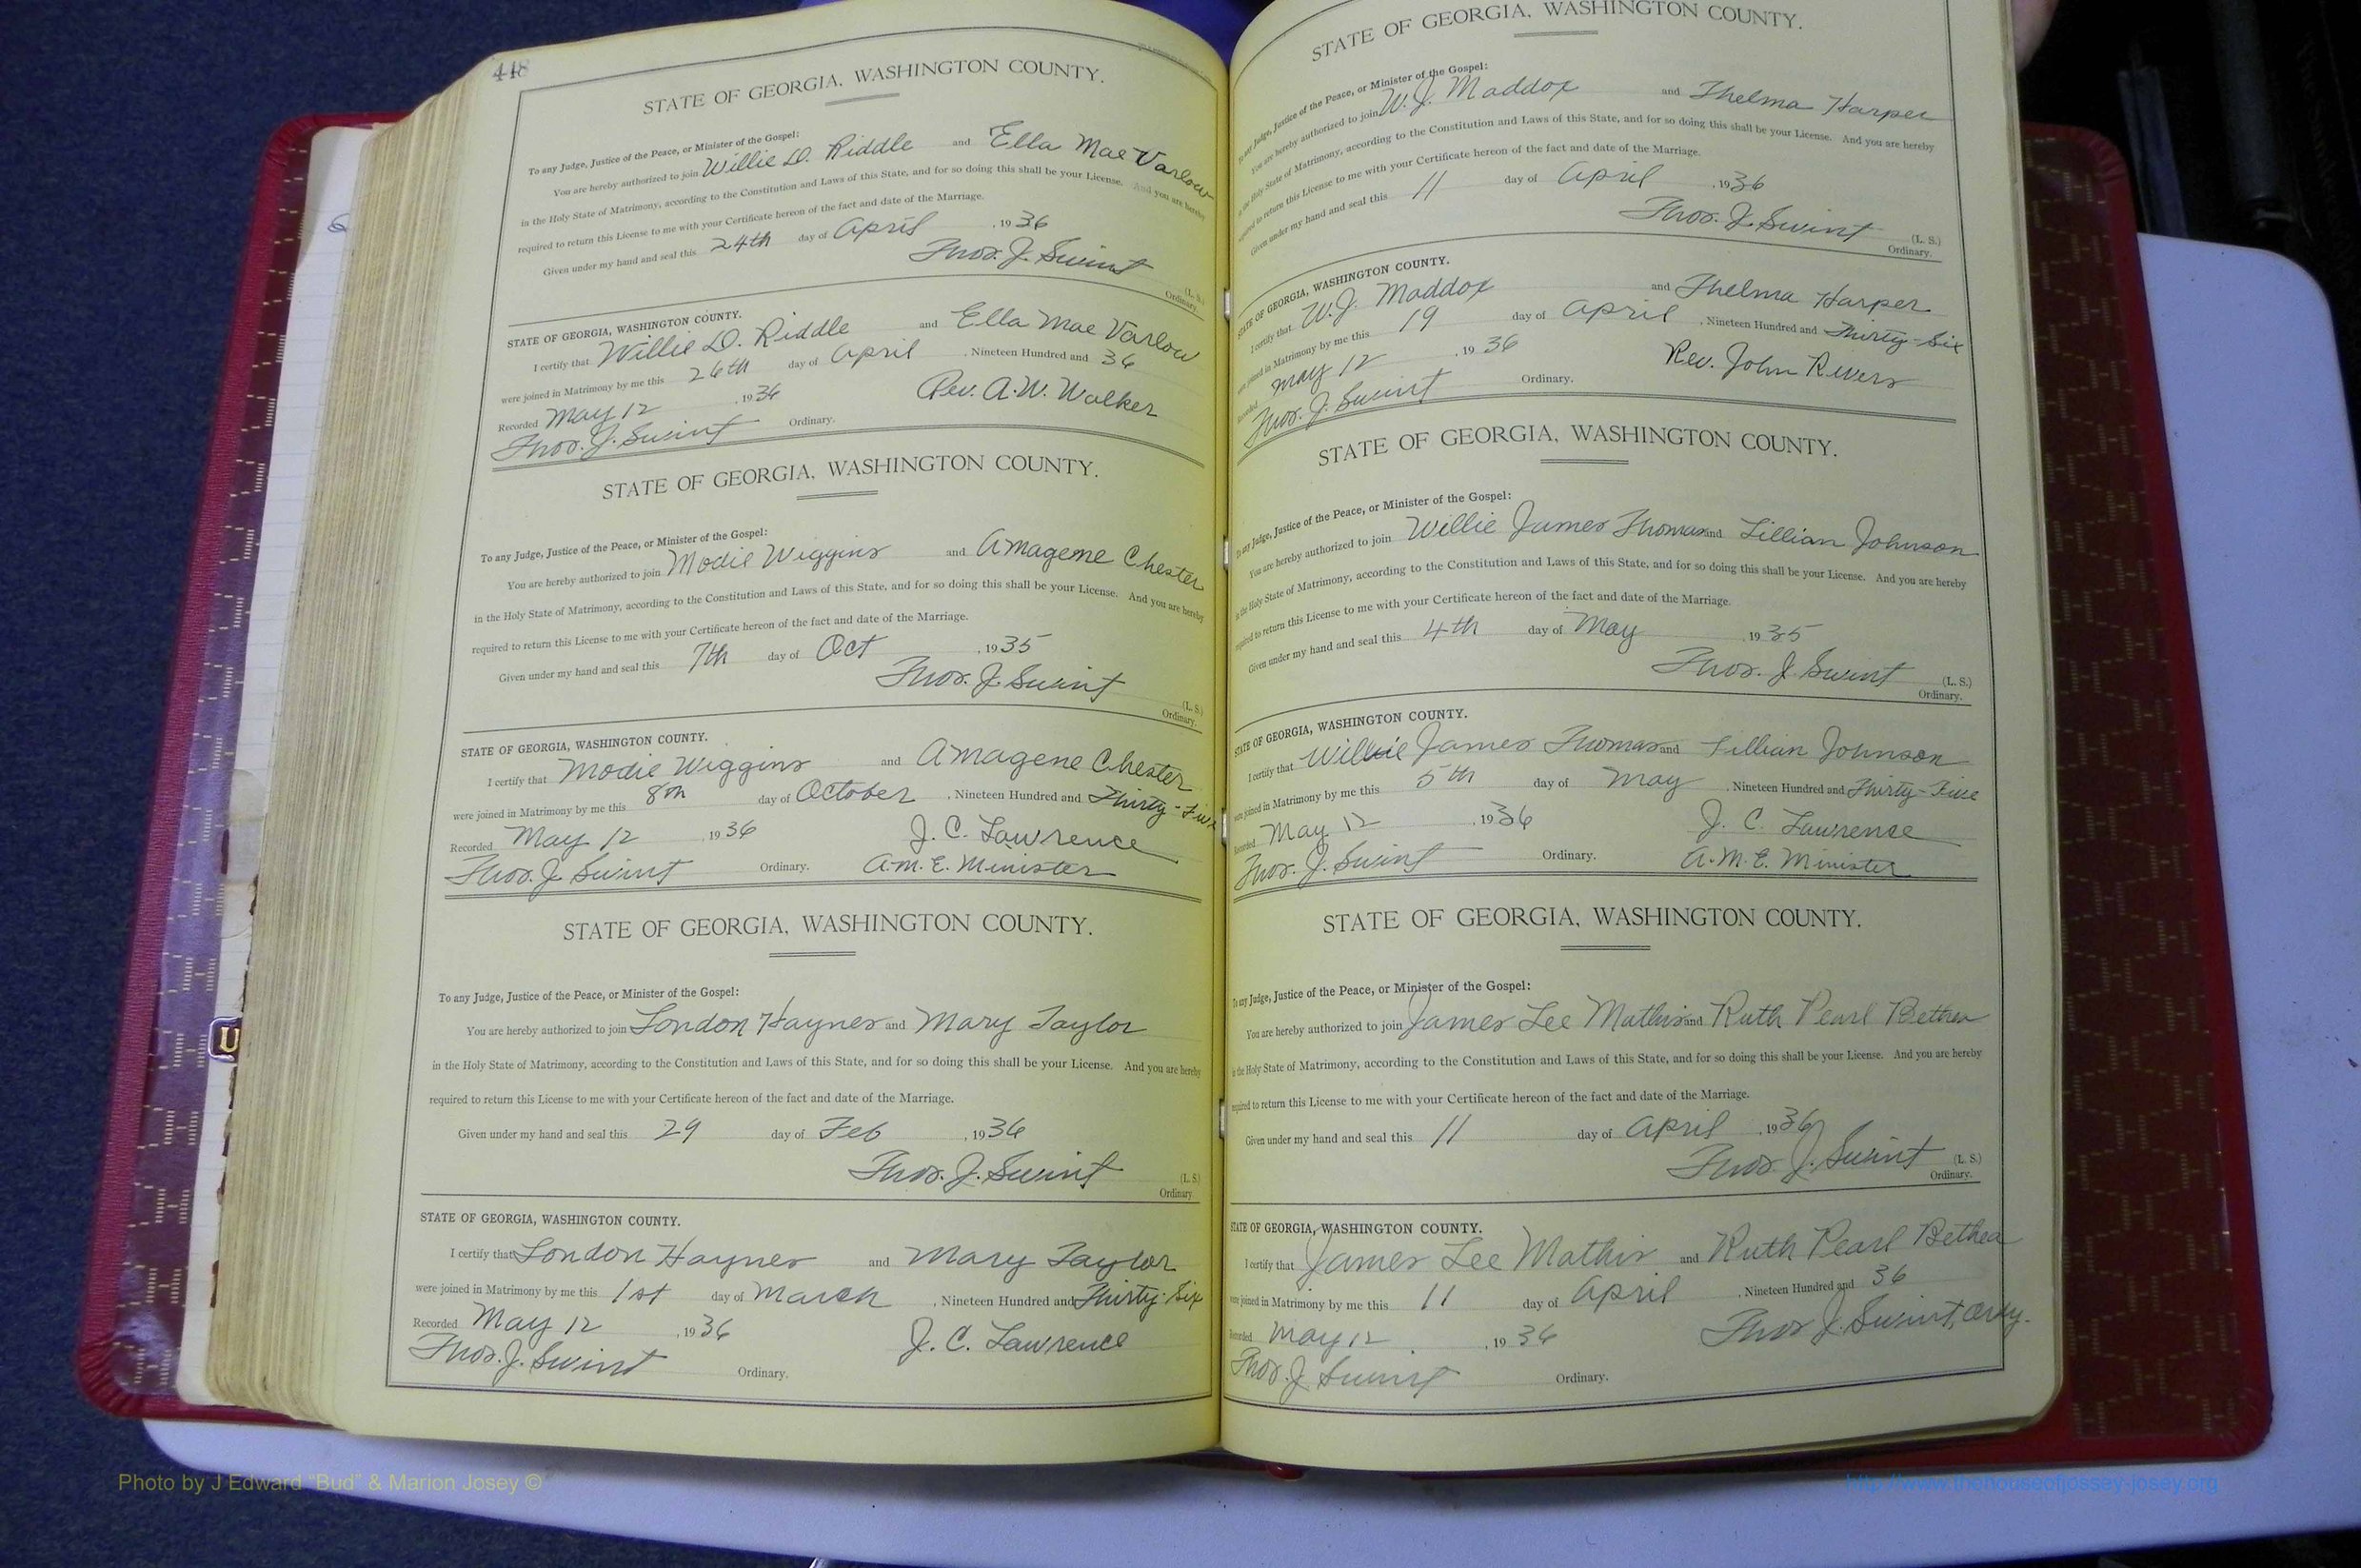 448
STATE OF GEORGIA, WASHINGTON COUNTY.
To any Judge, Justice of the Peace, or Minister of the Gospel:
You are hereby authorized to join Willie D. Riddle and Ella Mae Varlow
in the Holy State of Matrimony, according to the Constitution and Laws of this State, and for so doing this shall be your License. And you are hereby
required to return this License to me with your Certificate hereon of the fact and date of the Marriage.
Given under my hand and seal this 24th day of April, 1936
Thos. J. Swint (L. S.)
Ordinary.
STATE OF GEORGIA, WASHINGTON COUNTY.
I certify that Willie D. Riddle and Ella Mae Varlow
were joined in Matrimony by me this 26th day of April, Nineteen Hundred and 36
Recorded May 12, 1936 Rev. A.W. Walker
Thos. J. Swint Ordinary.
STATE OF GEORGIA, WASHINGTON COUNTY.
To any Judge, Justice of the Peace, or Minister of the Gospel:
You are hereby authorized to join Modie Wiggins and Amagene Chester
in the Holy State of Matrimony, according to the Constitution and Laws of this State, and for so doing this shall be your License. And you are hereby
required to return this License to me with your Certificate hereon of the fact and date of the Marriage.
Given under my hand and seal this 7th day of Oct, 1935
Thos. J. Swint (L. S.)
Ordinary.
STATE OF GEORGIA, WASHINGTON COUNTY.
I certify that Modie Wiggins and Amagene Chester
were joined in Matrimony by me this 8th day of October, Nineteen Hundred and Thirty-Five
Recorded May 12, 1936 J. C. Lawrence
Thos. J. Swint Ordinary. A.M.E. Minister
STATE OF GEORGIA, WASHINGTON COUNTY.
To any Judge, Justice of the Peace, or Minister of the Gospel:
You are hereby authorized to join London Haynes and Mary Taylor
in the Holy State of Matrimony, according to the Constitution and Laws of this State, and for so doing this shall be your License. And you are hereby
required to return this License to me with your Certificate hereon of the fact and date of the Marriage.
Given under my hand and seal this 29 day of Feb, 1936
Thos. J. Swint (L. S.)
Ordinary
STATE OF GEORGIA, WASHINGTON COUNTY.
I certify that London Haynes and Mary Taylor
were joined in Matrimony by me this 1st day of March, Nineteen Hundred and Thirty-Six
Recorded May 12, 1936 J. C. Lawrence
Thos. J. Swint Ordinary.
STATE OF GEORGIA, WASHINGTON COUNTY.
To any Judge, Justice of the Peace, or Minister of the Gospel:
You are hereby authorized to join W. J. Maddox and Thelma Harper
in the Holy State of Matrimony, according to the Constitution and Laws of this State, and for so doing this shall be your License. And you are hereby
required to return this License to me with your Certificate hereon of the fact and date of the Marriage.
Given under my hand and seal this 11 day of April, 1936
Thos. J. Swint (L. S.)
Ordinary.
STATE OF GEORGIA, WASHINGTON COUNTY.
I certify that W. J. Maddox and Thelma Harper
were joined in Matrimony by me this 19 day of April, Nineteen Hundred and Thirty-Six
Recorded May 12, 1936 Rev. John Rivers
Thos. J. Swint Ordinary.
STATE OF GEORGIA, WASHINGTON COUNTY.
To any Judge, Justice of the Peace, or Minister of the Gospel:
You are hereby authorized to join Willie James Thomas and Lillian Johnson
in the Holy State of Matrimony, according to the Constitution and Laws of this State, and for so doing this shall be your License. And you are hereby
required to return this License to me with your Certificate hereon of the fact and date of the Marriage.
Given under my hand and seal this 4th day of May, 1935
Thos. J. Swint (L. S.)
Ordinary.
STATE OF GEORGIA, WASHINGTON COUNTY.
I certify that Willie James Thomas and Lillian Johnson
were joined in Matrimony by me this 5th day of May, Nineteen Hundred and Thirty-Five
Recorded May 12, 1936 J. C. Lawrence
Thos. J. Swint Ordinary. A.M.E. Minister
STATE OF GEORGIA, WASHINGTON COUNTY.
To any Judge, Justice of the Peace, or Minister of the Gospel:
You are hereby authorized to join James Lee Mathis and Ruth Pearl Bethea
in the Holy State of Matrimony, according to the Constitution and Laws of this State, and for so doing this shall be your License. And you are hereby
required to return this License to me with your Certificate hereon of the fact and date of the Marriage.
Given under my hand and seal this 11 day of April, 1936
Thos. J. Swint (L. S.)
Ordinary.
STATE OF GEORGIA, WASHINGTON COUNTY.
I certify that James Lee Mathis and Ruth Pearl Bethea
were joined in Matrimony by me this 11 day of April, Nineteen Hundred and 36
Recorded May 12, 1936 Thos J. Swint, Ordy.
Thos. J. Swint Ordinary.
U
Photo by J Edward “Bud” & Marion Josey ©
http://www.thehouseofjossey-josey.org